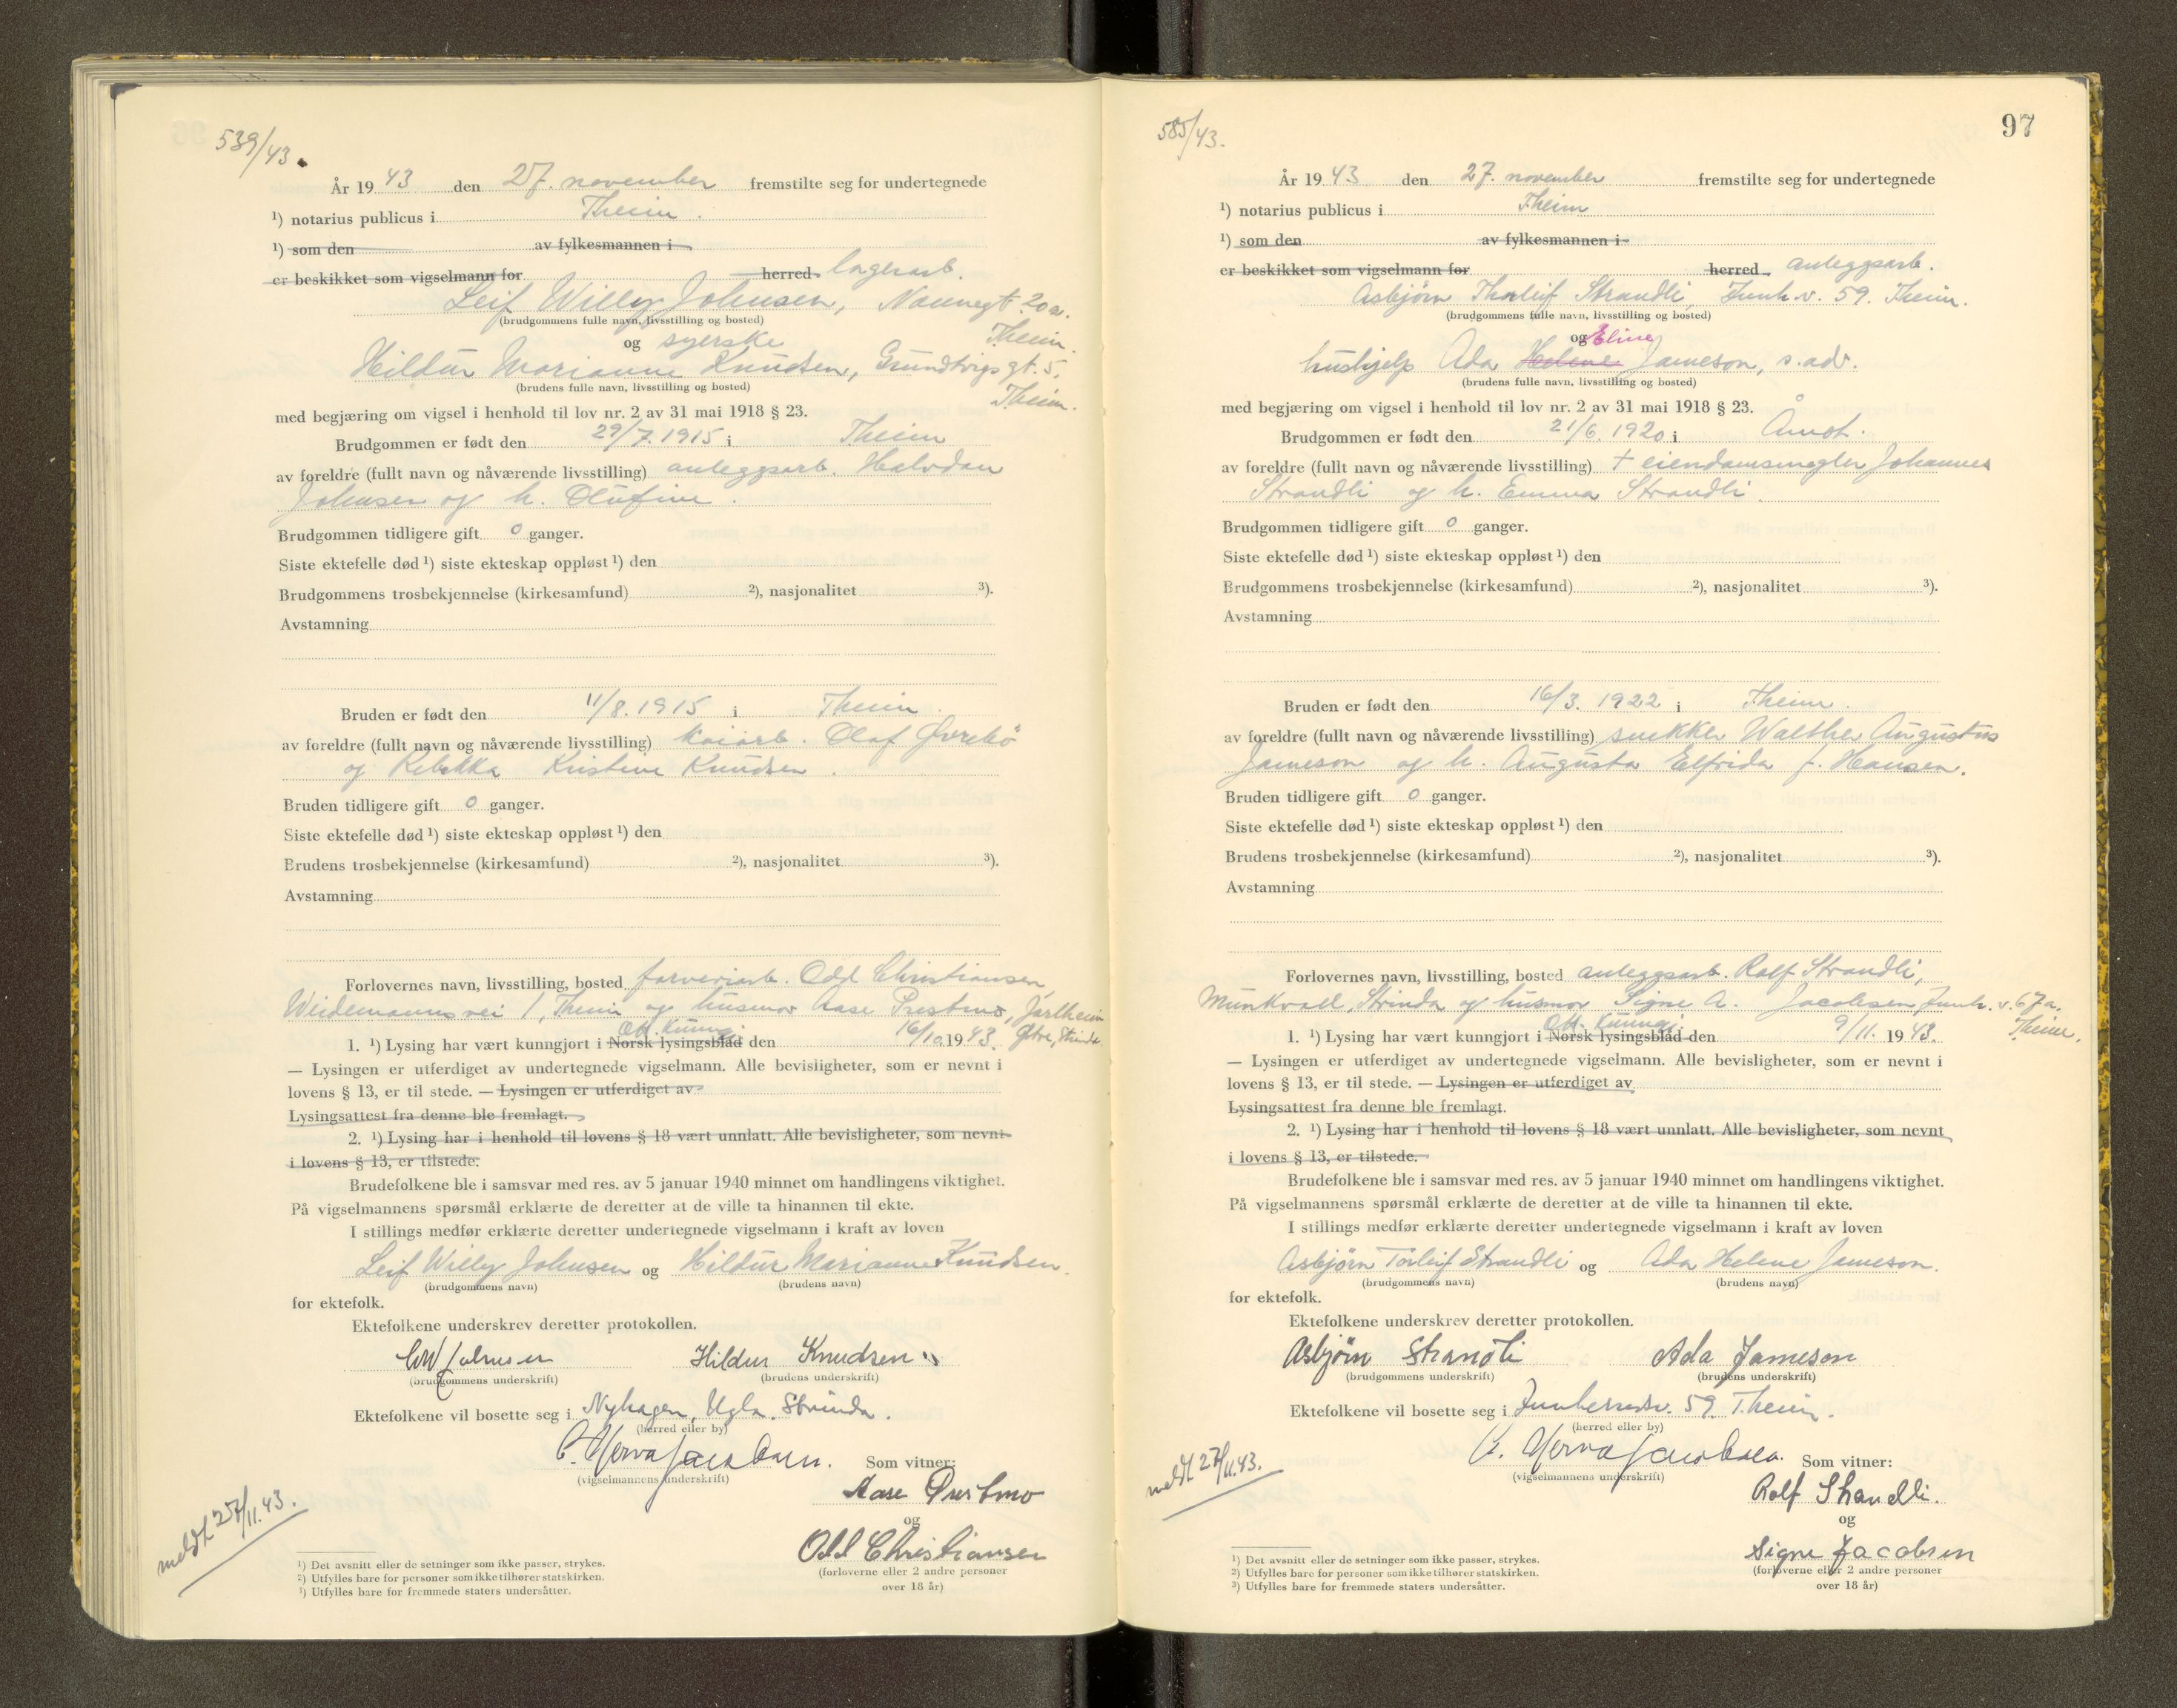 539/43.
År 1943 den 27. november fremstilte seg for undertegnede
¹) notarius publicus i Theim.
¹) som den av fylkesmannen i
er beskikket som vigselmann for herred. lagerarb.
Leif Willy Johnsen, Nannegt. 20a.
(brudgommens fulle navn, livsstilling og bosted) Theim.
og syerske
Hildur Marianne Knudsen, Grundtvigs gt. 5,
(brudens fulle navn, livsstilling og bosted) Theim.
med begjæring om vigsel i henhold til lov nr. 2 av 31 mai 1918 § 23.
Brudgommen er født den 29/7. 1915 i Theim
av foreldre (fullt navn og nåværende livsstilling) anleggsarb. Halvdan
Johnsen og h. Olufine.
Brudgommen tidligere gift 0 ganger.
Siste ektefelle død ¹) siste ekteskap oppløst ¹) den
Brudgommens trosbekjennelse (kirkesamfund) ²), nasjonalitet ³).
Avstamning
Bruden er født den 11/8. 1915 i Theim.
av foreldre (fullt navn og nåværende livsstilling) kaiarb. Olaf Øvrebö
og Rebekka Kristine Knudsen.
Bruden tidligere gift 0 ganger.
Siste ektefelle død ¹) siste ekteskap oppløst ¹) den
Brudens trosbekjennelse (kirkesamfund) ²), nasjonalitet ³).
Avstamning
Forlovernes navn, livsstilling, bosted farveriarb. Odd Christiansen,
Weidemannsvei 1, Theim og husmor Aase Prestmo, Jarlheim
Off. kunngj.
1. ¹) Lysing har vært kunngjort i Norsk lysingsblad den 16/10 1943. Øtre, Strinda.
— Lysingen er utferdiget av undertegnede vigselmann. Alle bevisligheter, som er nevnt i
lovens § 13, er til stede. — Lysingen er utferdiget av
Lysingsattest fra denne ble fremlagt.
2. ¹) Lysing har i henhold til lovens § 18 vært unnlatt. Alle bevisligheter, som nevnt
i lovens § 13, er tilstede.
Brudefolkene ble i samsvar med res. av 5 januar 1940 minnet om handlingens viktighet.
På vigselmannens spørsmål erklærte de deretter at de ville ta hinannen til ekte.
I stillings medfør erklærte deretter undertegnede vigselmann i kraft av loven
Leif Willy Johnsen og Hildur Marianne Knudsen.
(brudgommens navn) (brudens navn)
for ektefolk.
Ektefolkene underskrev deretter protokollen.
LWJohnsen Hildur Knudsen
(brudgommens underskrift) (brudens underskrift)
Ektefolkene vil bosette seg i Nyhagen, Ugla, Strinda.
(herred eller by)
Som vitner:
(vigselmannens underskrift)
Aase Prestmo
og
Odd Christiansen
(forloverne eller 2 andre personer
over 18 år)
meldt 27/11.43.
¹) Det avsnitt eller de setninger som ikke passer, strykes.
²) Utfylles bare for personer som ikke tilhører statskirken.
³) Utfylles bare for fremmede staters undersåtter.
97
585/43.
År 1943 den 27. november fremstilte seg for undertegnede
¹) notarius publicus i Theim
¹) som den av fylkesmannen i
er beskikket som vigselmann for herred anleggsarb.
Asbjörn Thorleif Strandli, Junh. v. 59. Theim.
(brudgommens fulle navn, livsstilling og bosted)
og Eline
hushjelp Ada Helene Jameson, s. adr.
(brudens fulle navn, livsstilling og bosted)
med begjæring om vigsel i henhold til lov nr. 2 av 31 mai 1918 § 23.
Brudgommen er født den 21/6. 1920 i Åmot.
av foreldre (fullt navn og nåværende livsstilling) + eiendomsmegler Johannes
Strandli og h. Emma Strandli.
Brudgommen tidligere gift 0 ganger.
Siste ektefelle død ¹) siste ekteskap oppløst ¹) den
Brudgommens trosbekjennelse (kirkesamfund) ²), nasjonalitet ³).
Avstamning
Bruden er født den 16/3. 1922 i Theim.
av foreldre (fullt navn og nåværende livsstilling) snekker Walther Augustus
Jameson og h. Augusta Elfrida f. Hansen.
Bruden tidligere gift 0 ganger.
Siste ektefelle død ¹) siste ekteskap oppløst ¹) den
Brudens trosbekjennelse (kirkesamfund) ²), nasjonalitet ³).
Avstamning
Forlovernes navn, livsstilling, bosted anleggsarb. Rolf Strandli,
Munkvoll, Strinda og husmor Signe A. Jacobsen, Junh. v. 67a.
Off. kunngj. Theim.
1. ¹) Lysing har vært kunngjort i Norsk lysingsblad den 9/11. 1943.
— Lysingen er utferdiget av undertegnede vigselmann. Alle bevisligheter, som er nevnt i
lovens § 13, er til stede. — Lysingen er utferdiget av
Lysingsattest fra denne ble fremlagt.
2. ¹) Lysing har i henhold til lovens § 18 vært unnlatt. Alle bevisligheter, som nevnt
i lovens § 13, er tilstede.
Brudefolkene ble i samsvar med res. av 5 januar 1940 minnet om handlingens viktighet.
På vigselmannens spørsmål erklærte de deretter at de ville ta hinannen til ekte.
I stillings medfør erklærte deretter undertegnede vigselmann i kraft av loven
Asbjörn Torleif Strandli og Ada Helene Jameson.
(brudgommens navn) (brudens navn)
for ektefolk.
Ektefolkene underskrev deretter protokollen.
Asbjörn Strandli Ada Jameson
(brudgommens underskrift) (brudens underskrift)
Ektefolkene vil bosette seg i Junkersv. 59. Theim.
(herred eller by)
Som vitner:
(vigselmannens underskrift)
Rolf Strandli.
og
Signe Jacobsen
(forloverne eller 2 andre personer
over 18 år)
meldt 27/11.43.
¹) Det avsnitt eller de setninger som ikke passer, strykes.
²) Utfylles bare for personer som ikke tilhører statskirken.
³) Utfylles bare for fremmede staters undersåtter.